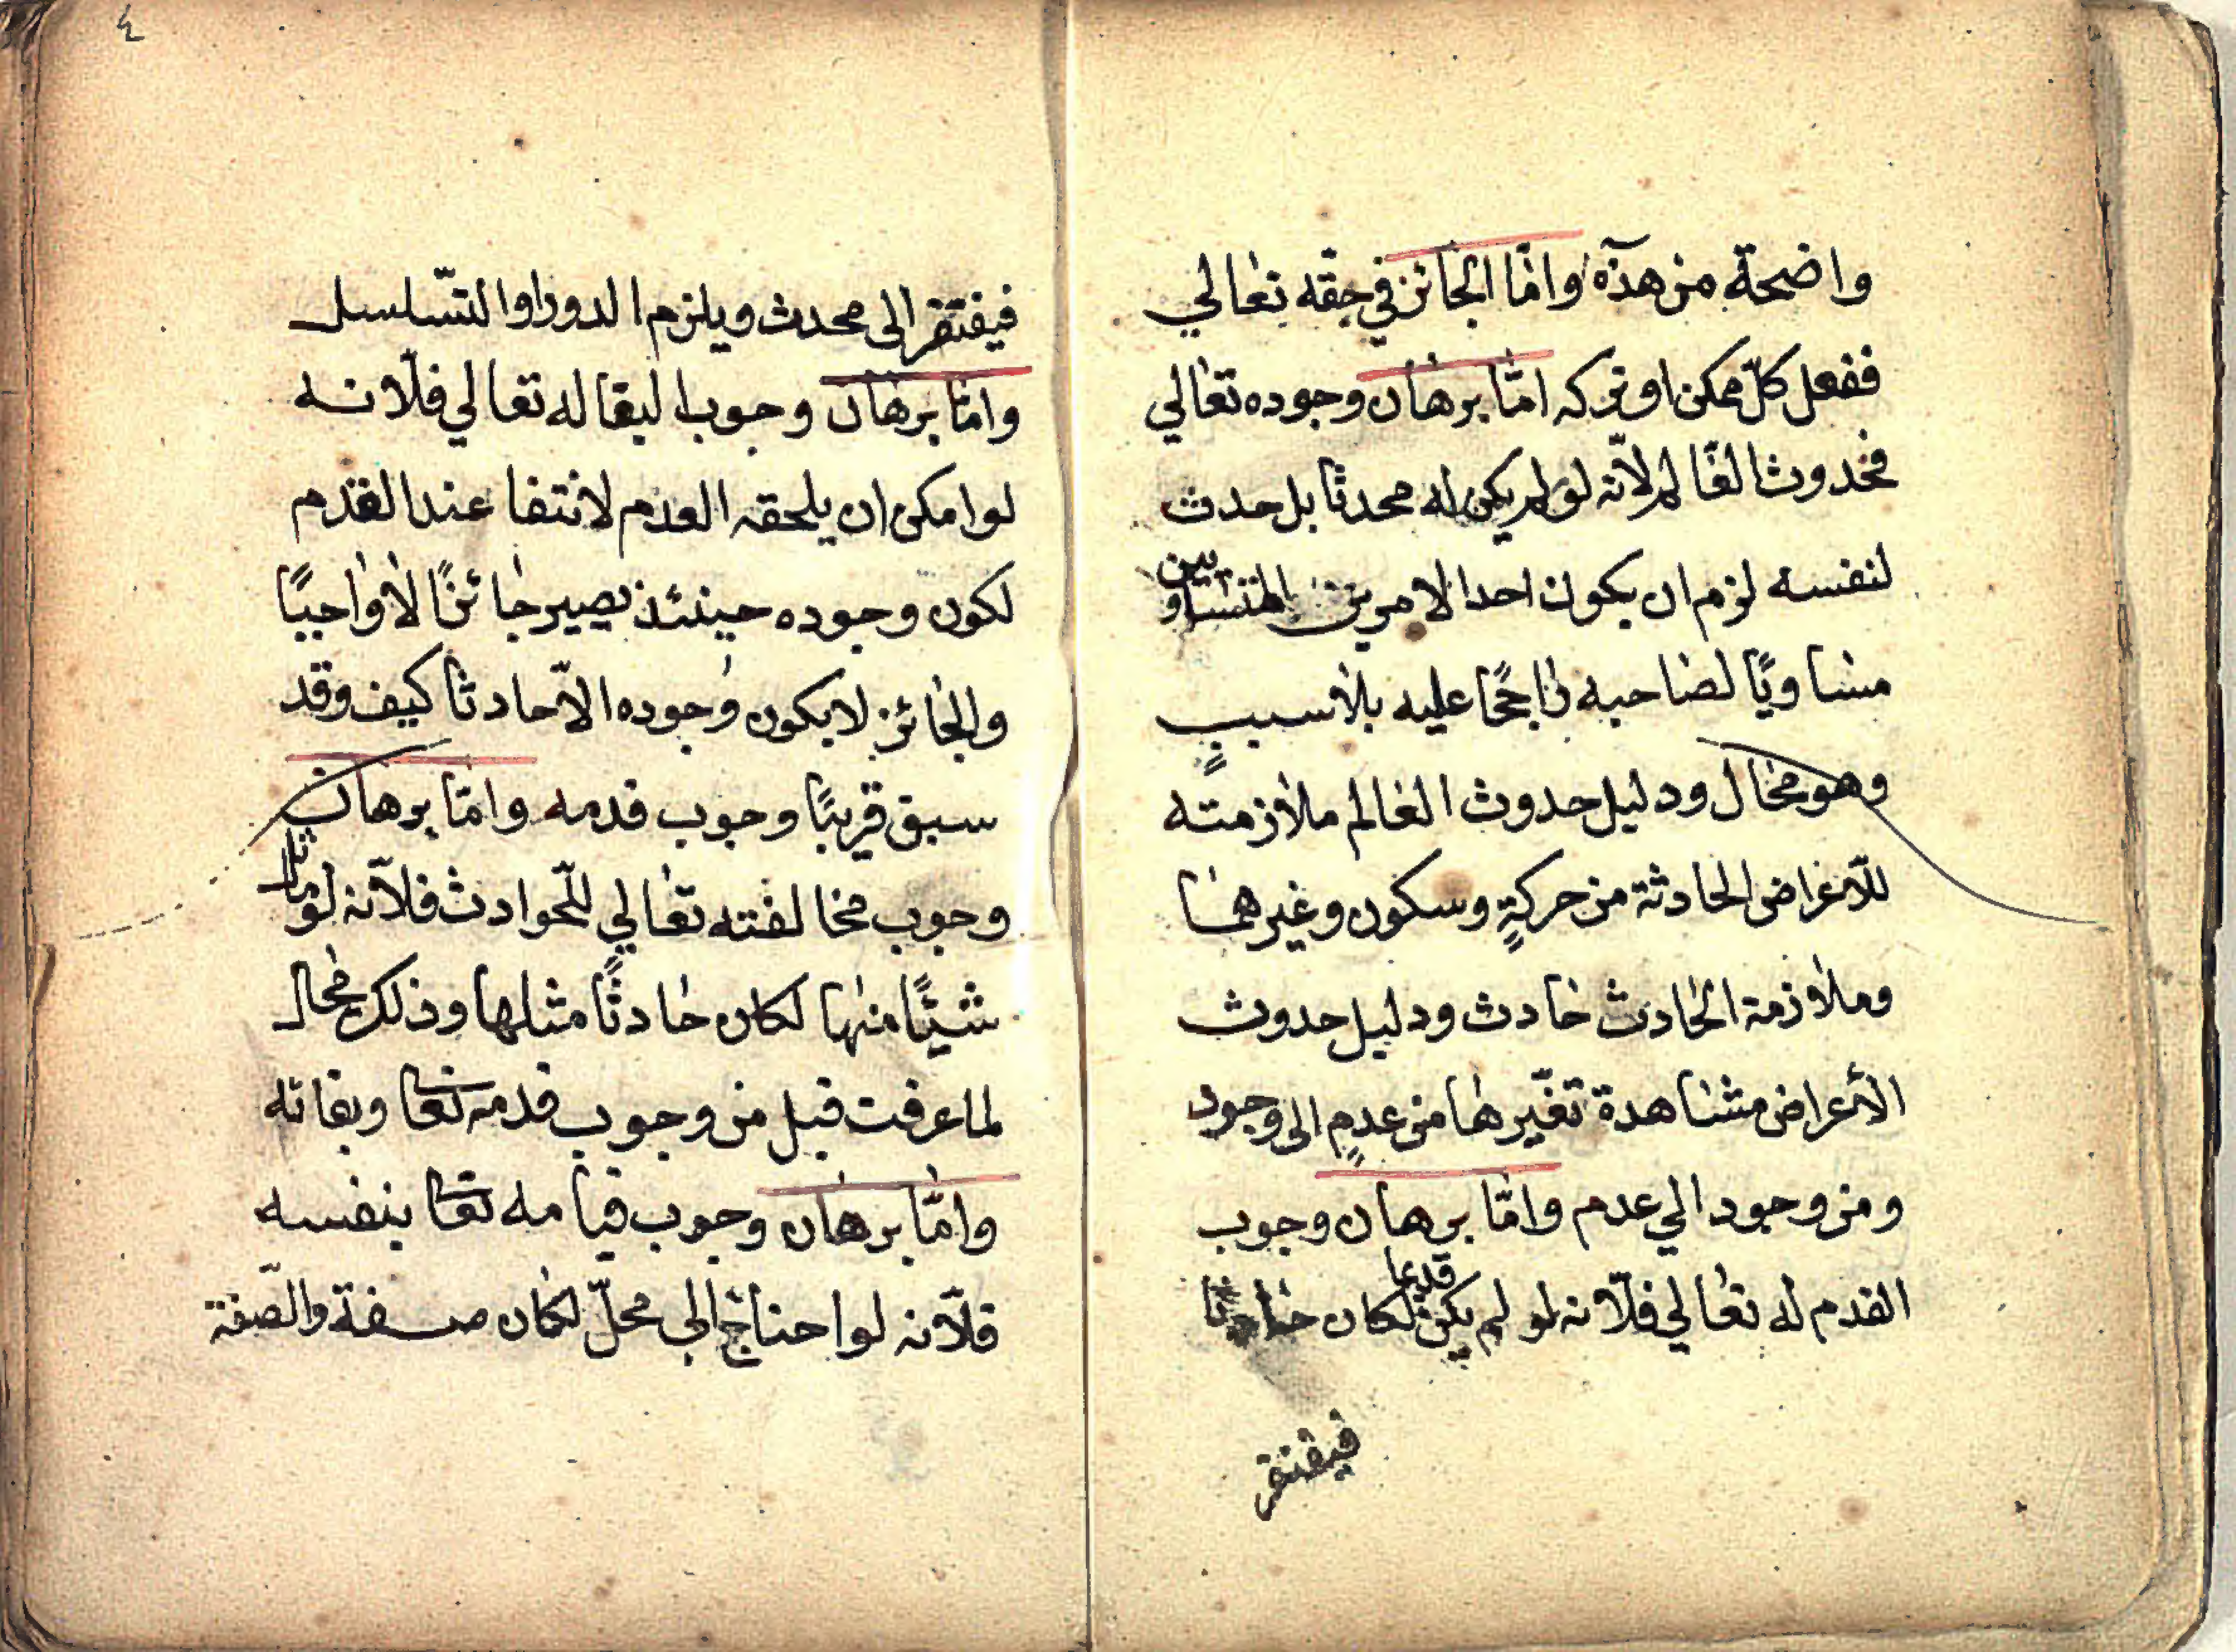 واضحة من هذه وامّا الجائز في حقّه تعالي
ففعل كلّ ممكن او تركه امّا برهان وجوده تعالي
فحدوث العالم لانّه لو لم يكن له محدثا بل حدث
لنفسه لزم ان يكون احد الامرين المتساويين
مساويًا لصاحبه راجحًا عليه بلا سببٍ
وهو محال ودليل حدوث العالم ملازمته
للأعراض الحادثة من حركةٍ وسكون وغيرهما
وملازمة الحادث حادث ودليل حدوث
الأعراض مشاهدة تغيّرها من عدمٍ الى وجود
ومن وجود الي عدم وامّا برهان وجوب
القدم له تعالي فلّانه لو لم يكن قديما لكان حادثا
فيفتقر
٤
فيفتقر الى محدث ويلزم الدور او التّسلسل
وامّا برهان وجوب البقا له تعالي فلّانه
لو امكن ان يلحقه العدم لانتفا عند القدم
لكون وجوده حينئذ يصير جائزًا لا واجبًا
والجائز لا يكون وجوده الّا حادثا كيف وقد
سبق قريبًا وجوب قدمه وامّا برهان
وجوب مخالفته تعالي للحوادث فلّانه لو ماثل
شيئًا منها لكان حادثًا مثلها وذلك محال
لما عرفت قبل من وجوب قدمه تعا وبقائه
وامّا برهان وجوب قيامه تعا بنفسه
فلّانه لو احتاج الى محلّ لكان صفة والصّفة